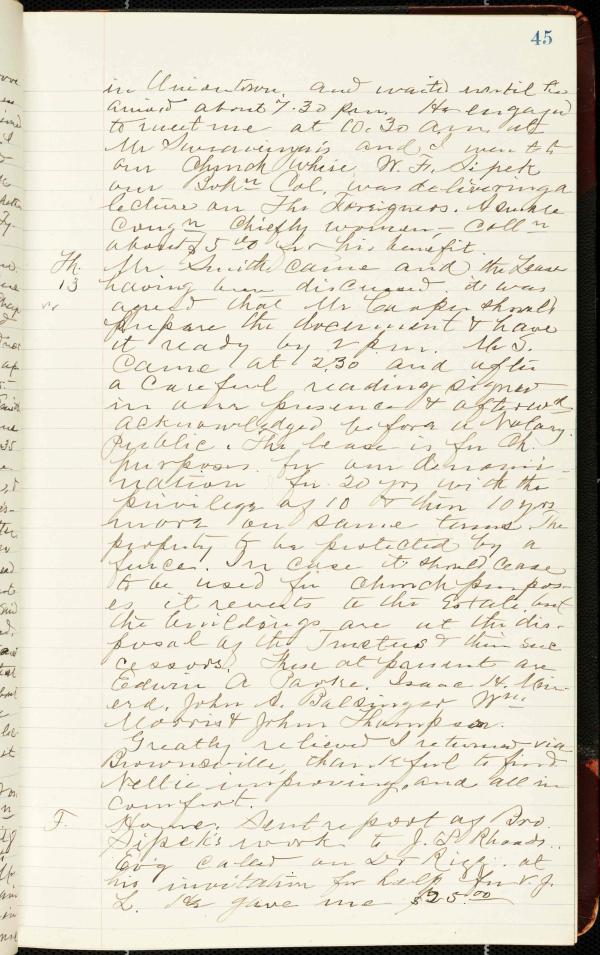 45
in Uniontown, and waited until he
arrived about 7.30 p.m. He engaged
to meet me at 10.30 a.m. at
Mr and I went to
our Church where W. F. Sipek
our Bohn Col. was delivering a
lecture on The Foreigners. A small
congn chiefly women – colln
about $5 00 for his benefit.
Th. Mr. Smith came and the Lease
13 having been discussed it was
agreed that Mr Cooper should
prepare the document & have
it ready by 2 p.m. Mr S.
came at 2.30 and after
a careful reading signed
in our presence & afterwds
acknowledged before a Notary
Public. The lease is for Ch.
purposes for our denomi-
nation for 20 yrs with the
privilege of 10 & then 10 yrs
more on same terms. The
property to be protected by a
fence. In case it should cease
to be used for church purpos-
es it reverts to the Estate but
the buildings are at the dis-
posal of the Trustees & their suc
cessors. These at present are
Edwin A Parke, Isaac H. Min-
erd, John A. Balsinger Wm.
Morris & John Thompson.
Greatly relieved I returned via
Brownsville, thankful to find
Nellie improving, and all in
comfort.
F. Home. Sent report of Bro.
Sipek's work to J. P. Rhoads.
Ev'g called on Dr Rigg at
his invitation for help for V. J.
L. He gave me $25.00